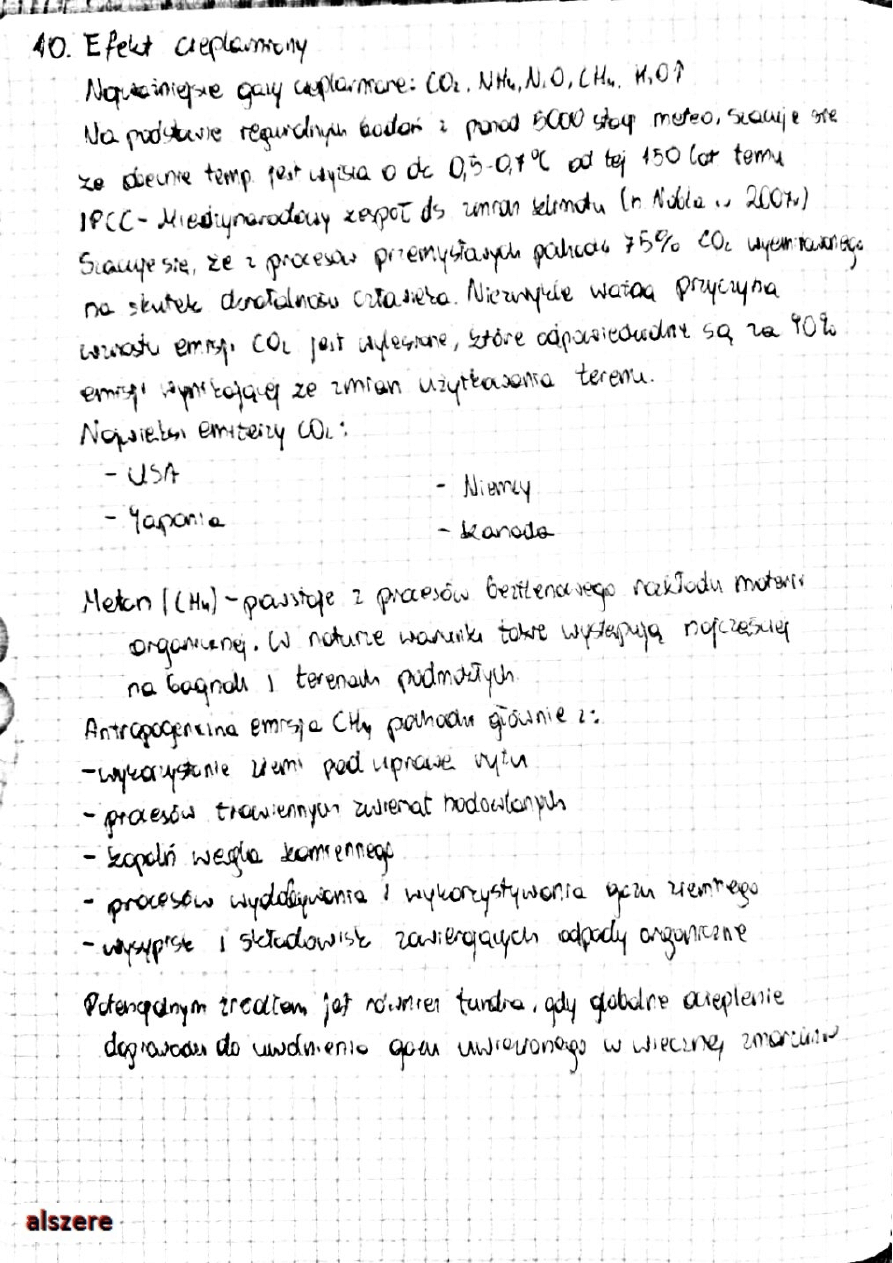 10. Efekt cieplarniany
Najważniejsze gazy cieplarniane: CO₂, NH₄, N₂O, CH₄, H₂O↑
Na podstawie regularnych badań z ponad 5000 stacji meteo, szacuje się
że obecnie temp. jest wyższa o ok 0,5-0,7°C od tej 150 lat temu
IPCC - Międzynarodowy zespół ds zmian klimatu (n. Nobla w 2007r)
Szacuje się, że z procesów przemysłowych pochodzi 75% CO₂ wyemitowanego
na skutek działalności człowieka. Niezwykle ważną przyczyną
wzrostu emisji CO₂ jest wylesianie, które odpowiedzialne są za 90%
emisji wynikającej ze zmian użytkowania terenu.
Najwięksi emiterzy CO₂:
- USA
- Japonia
- Niemcy
- Kanada
Metan (CH₄) - powstaje z procesów beztlenowego rozkładu materii
organicznej. W naturze warunki takie występują najczęściej
na bagnach i terenach podmokłych.
Antropogeniczna emisja CH₄ pochodzi głównie z:
- wykorzystanie ziemi pod uprawę ryżu
- procesów trawiennych zwierząt hodowlanych
- kopalń węgla kamiennego
- procesów wydobywania i wykorzystywania gazu ziemnego
- wysypisk i składowisk zawierających odpady organiczne
Potencjalnym źródłem jest również tundra, gdy globalne ocieplenie
doprowadzi do uwolnienia gazu uwięzionego w wiecznej zmarzlinie
alszere